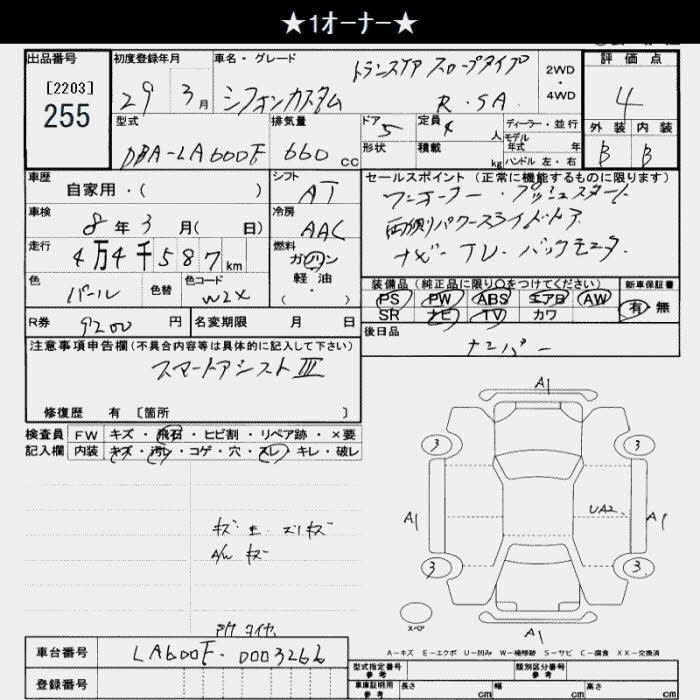 ★1オーナー★
出品番号 初度登録年月 車名・グレード トランスケア スロープタイプ 2WD ・ 4WD 評価点
[2203] 255 29 3月 シフォンカスタム R・SA 4
型式 排気量 ドア 5 定員 4 人 ディーラー・並行 外装 内装
DBA-LA600F 660 cc 形状 積載 kg モデル年式 年 ハンドル 左・右 B B
車歴 自家用・( ) シフト AT セールスポイント (正常に機能するものに限ります)
車検 8年 3月( 日) 冷房 AAC ワンオーナー・プッシュスタート
両側パワースライドドア
走行 4万4千587km 燃料 ガソリン 軽油 ・ ( ) ナビ・TV・バックモニタ
色 パール 色替 色コード W24
装備品 (純正品に限り〇をつけてください) 新車保証書
PS PW ABS エアB AW 有・無
SR ナビ TV カワ
R券 9200 円 名変期限 月 日 後日品
ナンバー
注意事項申告欄(不具合内容等は具体的に記入して下さい)
スマートアシストⅢ
修復歴 有 [箇所 ]
検査員 FW キズ・飛石・ヒビ割・リペア跡・×要
記入欄 内装 キズ・汚レ・コゲ・穴・スレ・キレ・破レ
A1
3 3
A1 UA2 A1
3 3
キズ
スペア
A1
A-キズ E-エクボ U-凹み W-補修跡 S-サビ C-腐食 XX-交換済
車台番号 LA600F-0003266
型式指定番号 参考 類別区分番号 参考
登録番号
車庫証明用 参考 長さ cm 幅 cm 高さ cm